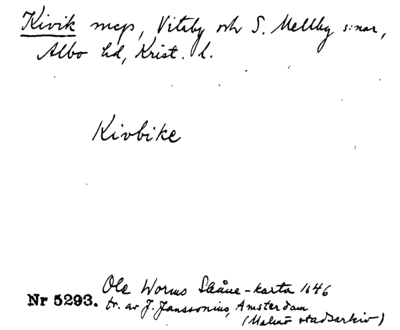 Kivik mcp, Vitaby och S. Mellby s:nar,
Albo hd, Krist. l.
Kivbike
Ole Worms Skåne-karta 1646
Nr 5293. tr. av J. Janssonius, Amsterdam
(Malmö stadsarkiv)